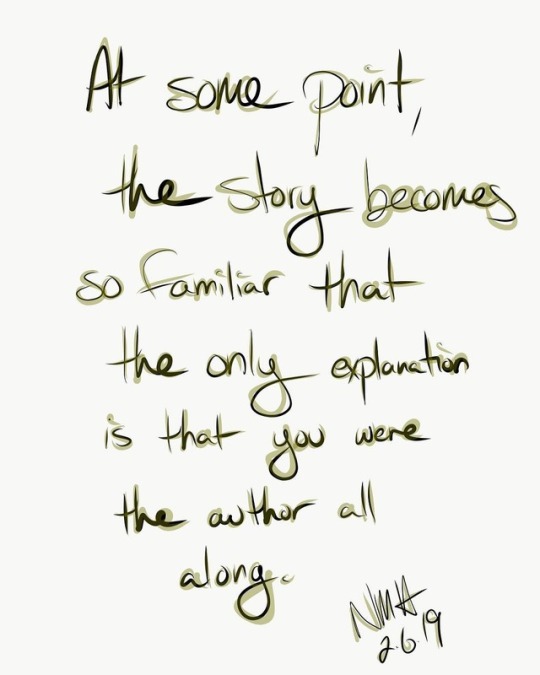 At some point,
the story becomes
so familiar that
the only explanation
is that you were
the author all
along.
NMH
2.6.19